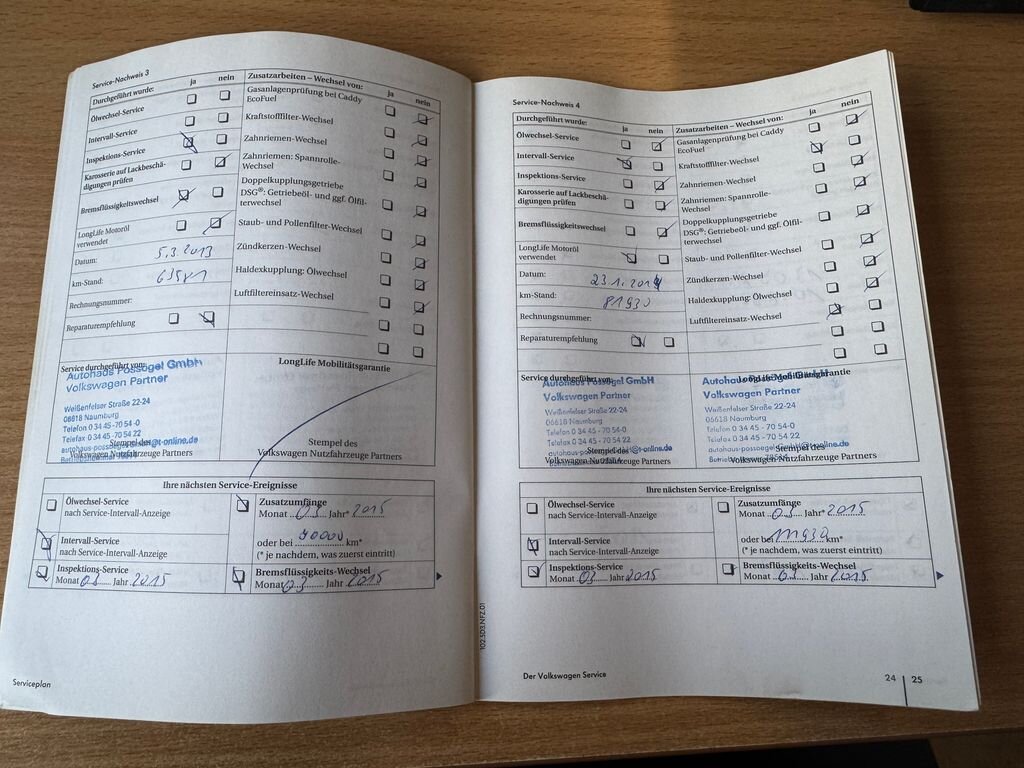 Service-Nachweis 3
Durchgeführt wurde: ja nein
Ölwechsel-Service
Intervall-Service
Inspektions-Service
Karosserie auf Lackbeschä-
digungen prüfen
Bremsflüssigkeitswechsel
LongLife Motoröl
verwendet
Datum: 5.3.2013
km-Stand: 63581
Rechnungsnummer:
Reparaturempfehlung
Zusatzarbeiten – Wechsel von: ja nein
Gasanlagenprüfung bei Caddy
EcoFuel
Kraftstofffilter-Wechsel
Zahnriemen-Wechsel
Zahnriemen: Spannrolle-
Wechsel
Doppelkupplungsgetriebe
DSG®: Getriebeöl- und ggf. Ölfil-
terwechsel
Staub- und Pollenfilter-Wechsel
Zündkerzen-Wechsel
Haldexkupplung: Ölwechsel
Luftfiltereinsatz-Wechsel
Service durchgeführt von:
Autohaus Possögel GmbH
Volkswagen Partner
Weißenfelser Straße 22-24
06618 Naumburg
Telefon 0 34 45 - 70 54-0
Telefax 0 34 45 - 70 54 22
Stempel des
Volkswagen Nutzfahrzeuge Partners
LongLife Mobilitätsgarantie
Stempel des
Volkswagen Nutzfahrzeuge Partners
Ihre nächsten Service-Ereignisse
Ölwechsel-Service
nach Service-Intervall-Anzeige
Zusatzumfänge
Monat 03 Jahr* 2015
oder bei 90000 km*
(* je nachdem, was zuerst eintritt)
Intervall-Service
nach Service-Intervall-Anzeige
Inspektions-Service
Monat 03 Jahr 2015
Bremsflüssigkeits-Wechsel
Monat 03 Jahr 2015
Serviceplan
102.5D3.NFZ.01
Service-Nachweis 4
Durchgeführt wurde: ja nein
Ölwechsel-Service
Intervall-Service
Inspektions-Service
Karosserie auf Lackbeschä-
digungen prüfen
Bremsflüssigkeitswechsel
LongLife Motoröl
verwendet
Datum: 23.1.2014
km-Stand: 81930
Rechnungsnummer:
Reparaturempfehlung
Zusatzarbeiten – Wechsel von: ja nein
Gasanlagenprüfung bei Caddy
EcoFuel
Kraftstofffilter-Wechsel
Zahnriemen-Wechsel
Zahnriemen: Spannrolle-
Wechsel
Doppelkupplungsgetriebe
DSG®: Getriebeöl- und ggf. Ölfil-
terwechsel
Staub- und Pollenfilter-Wechsel
Zündkerzen-Wechsel
Haldexkupplung: Ölwechsel
Luftfiltereinsatz-Wechsel
Service durchgeführt von:
Autohaus Possögel GmbH
Volkswagen Partner
Weißenfelser Straße 22-24
06618 Naumburg
Telefon 0 34 45 - 70 54-0
Telefax 0 34 45 - 70 54 22
Stempel des
Volkswagen Nutzfahrzeuge Partners
LongLife Mobilitätsgarantie
Autohaus Possögel GmbH
Volkswagen Partner
Weißenfelser Straße 22-24
06618 Naumburg
Telefon 0 34 45 - 70 54-0
Telefax 0 34 45 - 70 54 22
Stempel des
Volkswagen Nutzfahrzeuge Partners
Ihre nächsten Service-Ereignisse
Ölwechsel-Service
nach Service-Intervall-Anzeige
Zusatzumfänge
Monat 03 Jahr* 2015
oder bei 111930 km*
(* je nachdem, was zuerst eintritt)
Intervall-Service
nach Service-Intervall-Anzeige
Inspektions-Service
Monat 03 Jahr 2015
Bremsflüssigkeits-Wechsel
Monat 03 Jahr 2015
Der Volkswagen Service
24 25